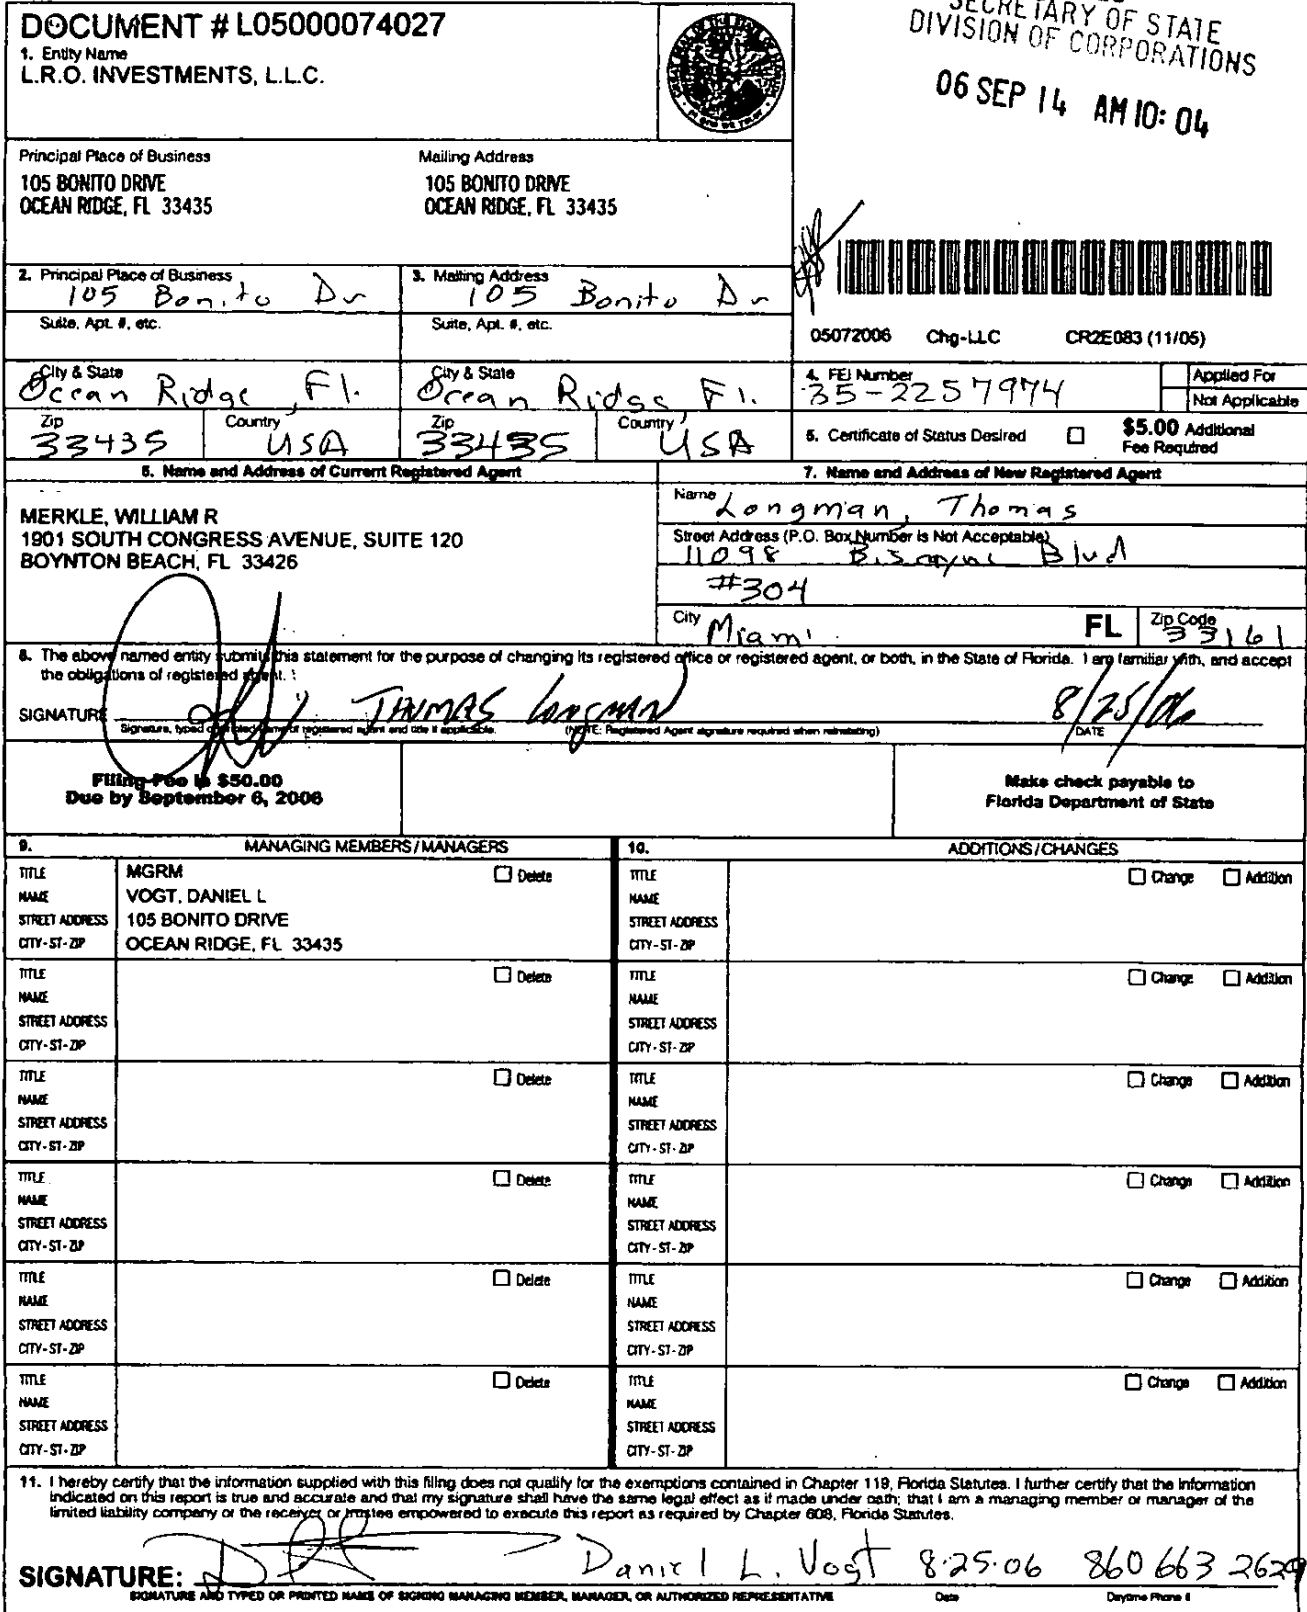 SECRETARY OF STATE
DIVISION OF CORPORATIONS
06 SEP 14 AM 10: 04
DOCUMENT # L05000074027
1. Entity Name
L.R.O. INVESTMENTS, L.L.C.
Principal Place of Business
105 BONITO DRIVE
OCEAN RIDGE, FL 33435
Mailing Address
105 BONITO DRIVE
OCEAN RIDGE, FL 33435
2. Principal Place of Business
105 Bonito Dr
3. Mailing Address
105 Bonito Dr
Suite, Apt. #, etc.
Suite, Apt. #, etc.
05072006 Chg-LLC CR2E083 (11/05)
City & State
Ocean Ridge, Fl.
City & State
Ocean Ridge, Fl.
4. FEI Number
35-2257974
Applied For
Not Applicable
Zip
33435
Country
USA
Zip
33435
Country
USA
5. Certificate of Status Desired
$5.00 Additional
Fee Required
6. Name and Address of Current Registered Agent
7. Name and Address of New Registered Agent
MERKLE, WILLIAM R
1901 SOUTH CONGRESS AVENUE, SUITE 120
BOYNTON BEACH, FL 33426
Name
Longman, Thomas
Street Address (P.O. Box Number is Not Acceptable)
11098 Biscayne Blvd
#304
City
Miami
FL
Zip Code
33161
8. The above named entity submits this statement for the purpose of changing its registered office or registered agent, or both, in the State of Florida. I am familiar with, and accept
the obligations of registered agent.
SIGNATURE THOMAS LONGMAN 8/25/06
Signature, typed or printed name of registered agent and title if applicable. (NOTE: Registered Agent signature required when reinstating) DATE
Filing Fee is $50.00
Due by September 6, 2006
Make check payable to
Florida Department of State
9. MANAGING MEMBERS / MANAGERS
10. ADDITIONS / CHANGES
TITLE MGRM Delete
NAME VOGT, DANIEL L
STREET ADDRESS 105 BONITO DRIVE
CITY-ST-ZIP OCEAN RIDGE, FL 33435
TITLE Change Addition
NAME
STREET ADDRESS
CITY-ST-ZIP
TITLE Delete
NAME
STREET ADDRESS
CITY-ST-ZIP
TITLE Change Addition
NAME
STREET ADDRESS
CITY-ST-ZIP
TITLE Delete
NAME
STREET ADDRESS
CITY-ST-ZIP
TITLE Change Addition
NAME
STREET ADDRESS
CITY-ST-ZIP
TITLE Delete
NAME
STREET ADDRESS
CITY-ST-ZIP
TITLE Change Addition
NAME
STREET ADDRESS
CITY-ST-ZIP
TITLE Delete
NAME
STREET ADDRESS
CITY-ST-ZIP
TITLE Change Addition
NAME
STREET ADDRESS
CITY-ST-ZIP
TITLE Delete
NAME
STREET ADDRESS
CITY-ST-ZIP
TITLE Change Addition
NAME
STREET ADDRESS
CITY-ST-ZIP
11. I hereby certify that the information supplied with this filing does not qualify for the exemptions contained in Chapter 119, Florida Statutes. I further certify that the information
indicated on this report is true and accurate and that my signature shall have the same legal effect as if made under oath; that I am a managing member or manager of the
limited liability company or the receiver or trustee empowered to execute this report as required by Chapter 608, Florida Statutes.
SIGNATURE: Daniel L. Vogt 8-25-06 860 663 2629
SIGNATURE AND TYPED OR PRINTED NAME OF SIGNING MANAGING MEMBER, MANAGER, OR AUTHORIZED REPRESENTATIVE Date Daytime Phone #